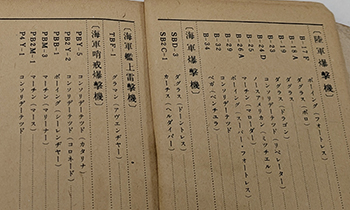 〔陸軍爆撃機〕
B-17F ボーイング(フォートレス)
ダグラス(ボロ)
B-19 ダグラス
B-23 ダグラス(ドラゴン)
B-24D コンソリデーテッド(リベレーター)
B-25 ノースアメリカン(ミッチェル)
マーチン
B-29 ボーイング(スーパー・フォートレス)
コンソリデーテッド
B-34 ベガ(ベンチュラ)
〔海軍爆撃機〕
SBD-3 ダグラス(ドーントレス)
SB2C-1 カーチス(ヘルダイバー)
〔海軍艦上雷撃機〕
TBF-1 グラマン(アヴェンヂャー)
〔海軍哨戒爆撃機〕
PBY-5 コンソリデーテッド(カタリナ)
PB2Y-2 コンソリデーテッド(コロネード)
PBB-1 ボーイング(シーレンヂャー)
PBM-3 マーチン(マリーナー)
PB2M-1 マーチン(マース)
P4Y-1 コンソリデーテッド